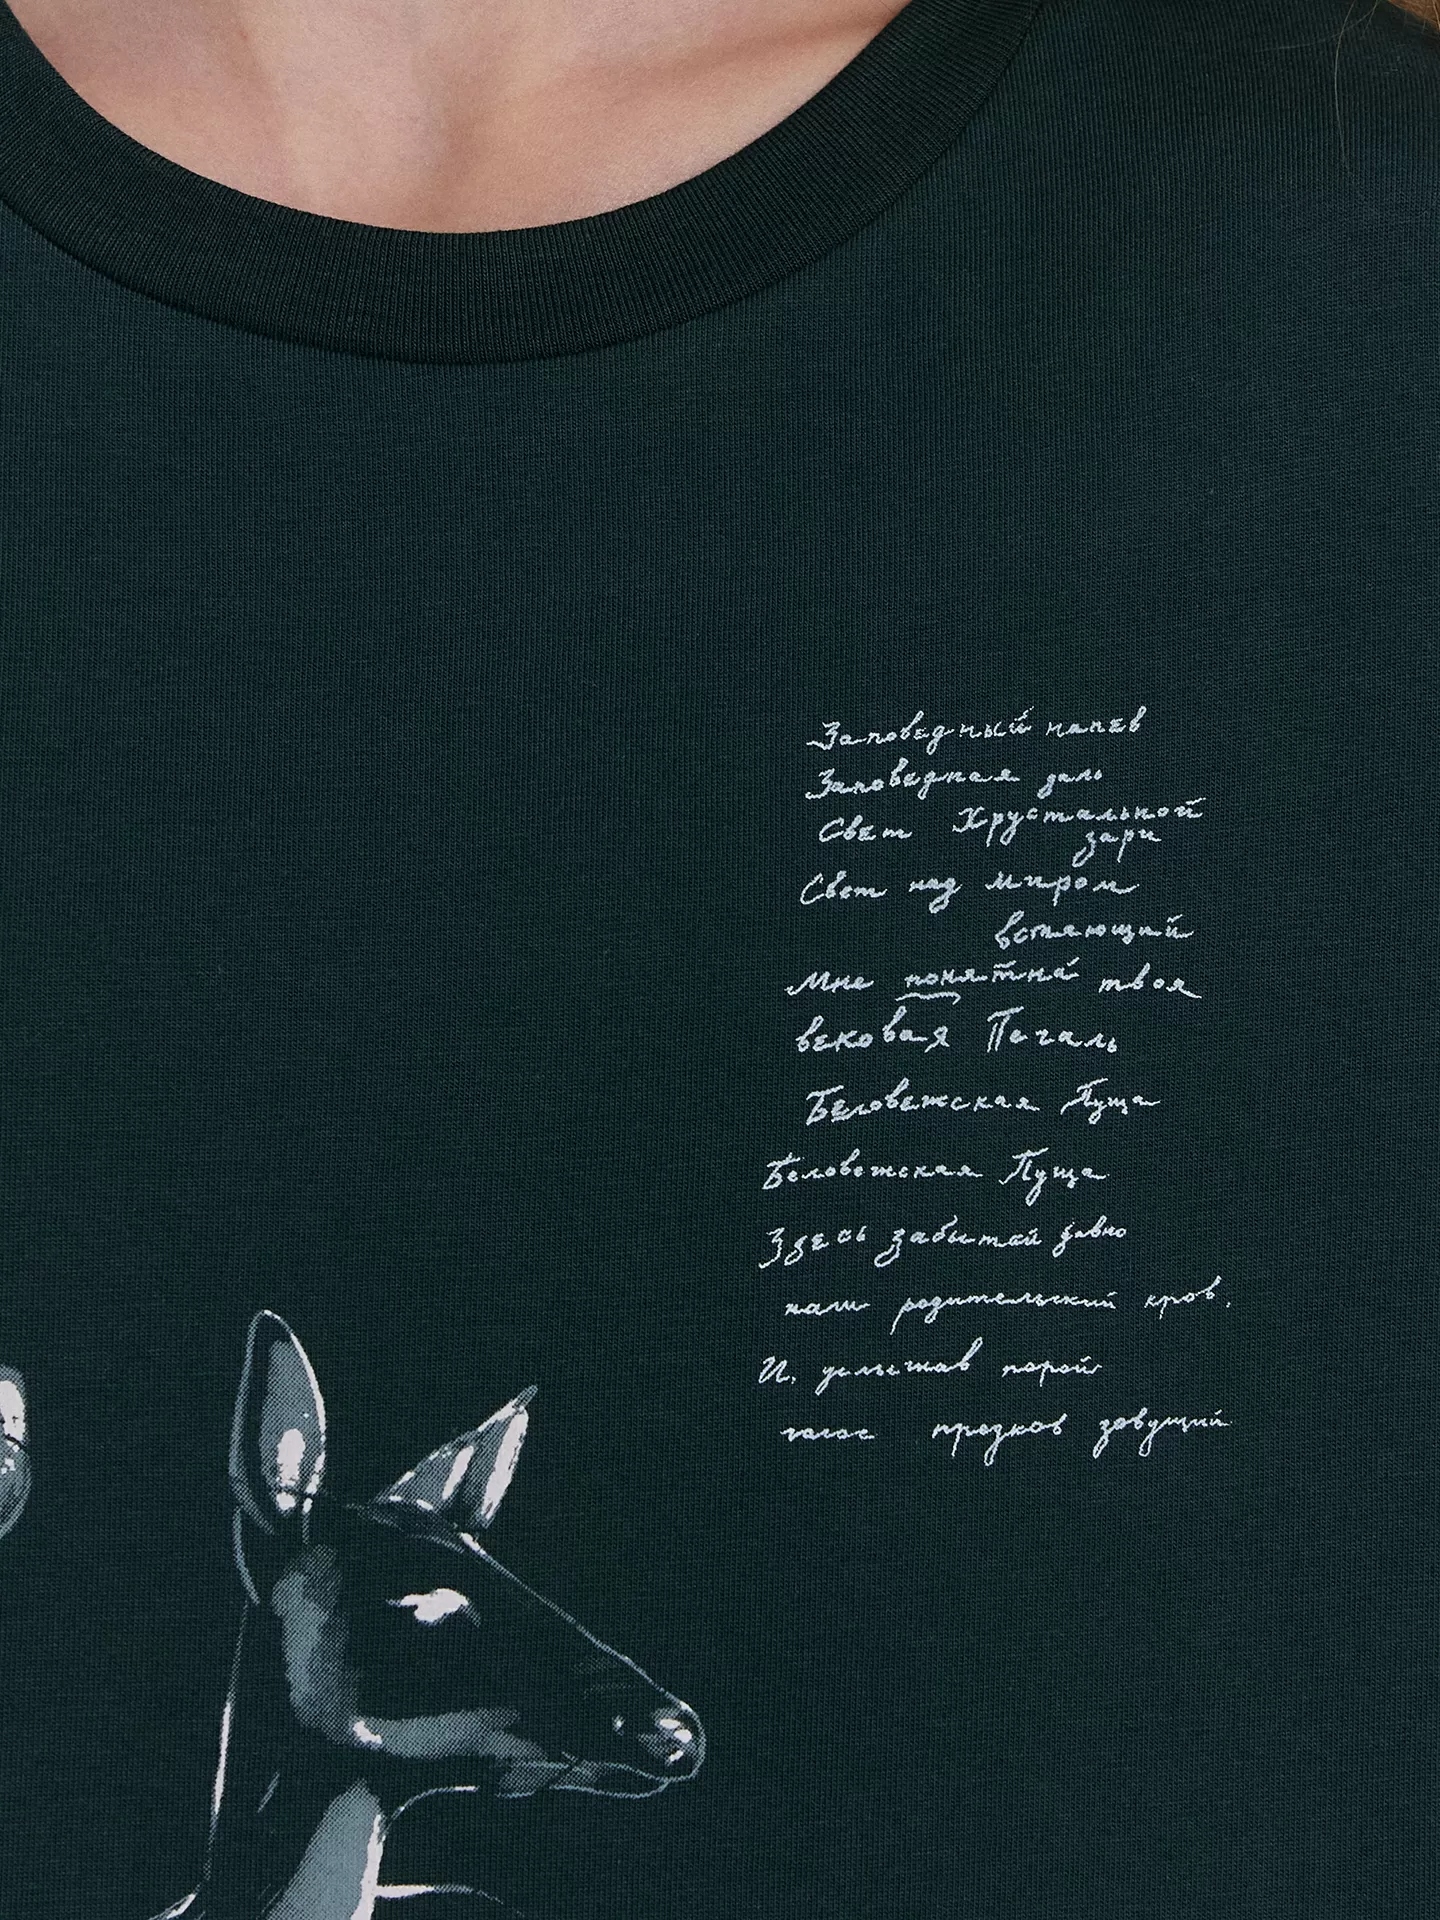 Заповедный напев
Заповедная даль
Свет Хрустальной
зари
Свет над миром
встающий
Мне понятна твоя
вековая Печаль
Беловежская Пуща
Беловежская Пуща
Здесь забытай давно
наш родительский кров,
И, услышав порой
голос предков зовущий